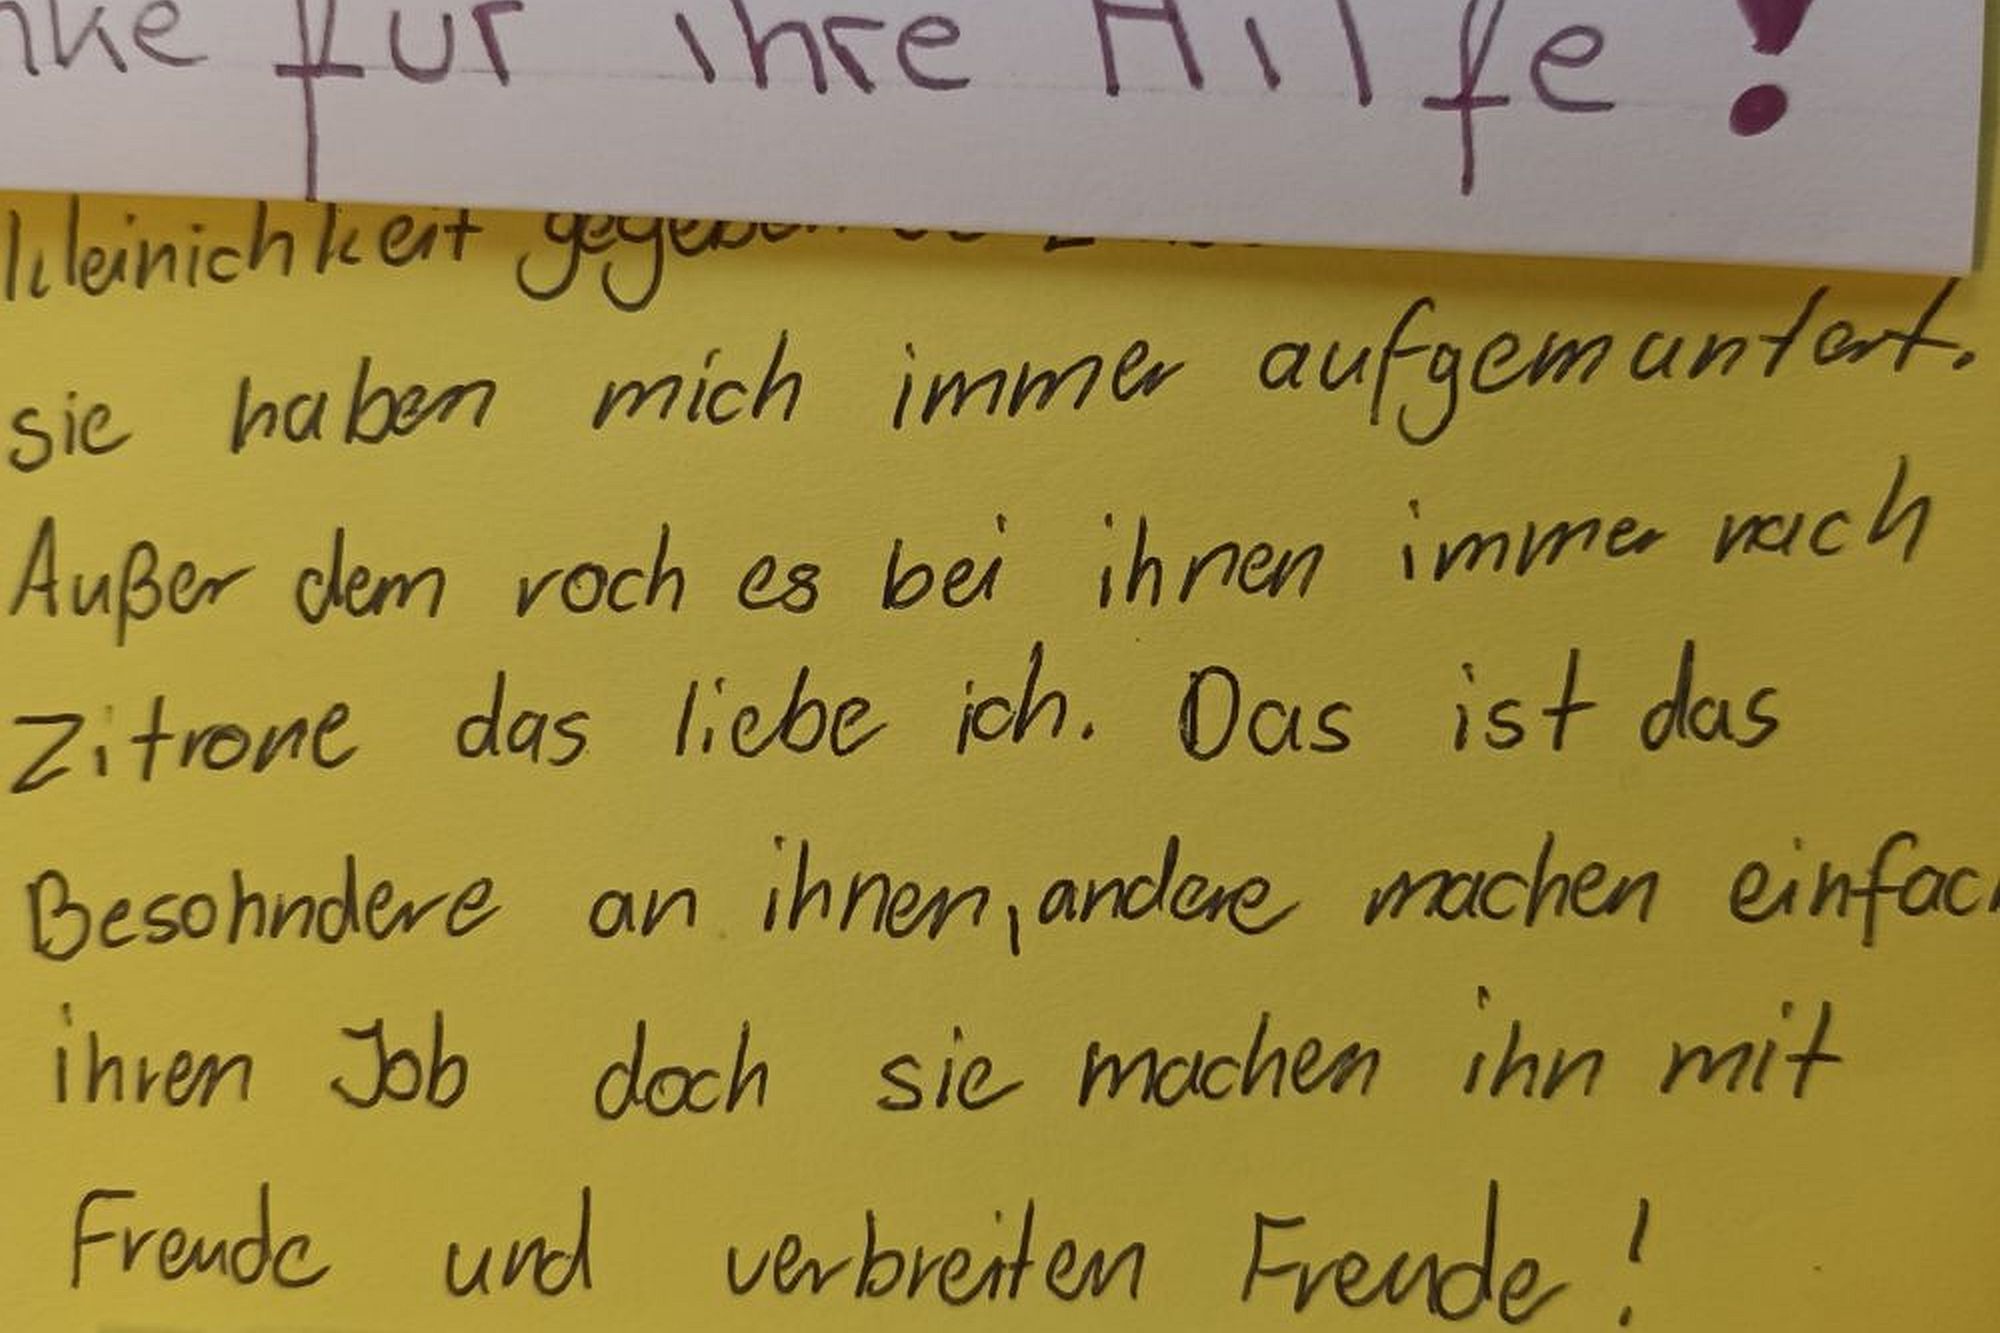 für ihre Hilfe!
kleinichkeit gegeben
sie haben mich immer aufgemuntert.
Außer dem roch es bei ihnen immer nach
Zitrone das liebe ich. Das ist das
Besohndere an ihnen, andere machen einfach
ihren Job doch sie machen ihn mit
Freude und verbreiten Freude!